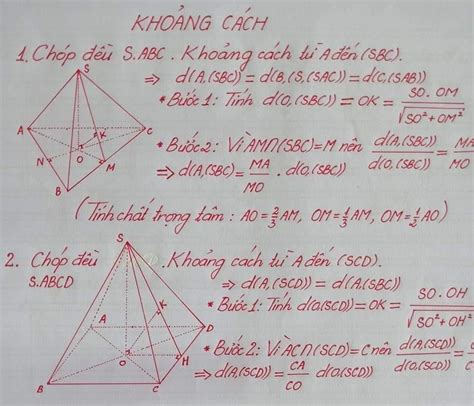 KHOẢNG CÁCH
1. Chóp đều S.ABC. Khoảng cách từ A đến (SBC).
⇒ d(A,(SBC)) = d(B,(SAC)) = d(C,(SAB))
* Bước 1: Tính d(O,(SBC)) = OK = SO.OM / √(SO²+OM²)
* Bước 2: Vì AM∩(SBC)=M nên d(A,(SBC)) / d(O,(SBC)) = MA / MO
⇒ d(A,(SBC)) = MA / MO . d(O,(SBC))
(Tính chất trọng tâm: AO = 2/3 AM, OM = 1/3 AM, OM = 1/2 AO)
S
A
C
K
O
N
M
B
2. Chóp đều S.ABCD. Khoảng cách từ A đến (SCD).
⇒ d(A,(SCD)) = d(A,(SBC))
* Bước 1: Tính d(O,(SCD)) = OK = SO.OH / √(SO²+OH²)
* Bước 2: Vì AC∩(SCD)=C nên d(A,(SCD)) / d(O,(SCD)) =
⇒ d(A,(SCD)) = CA / CO d(O,(SCD))
S
K
A
D
O
H
B
C